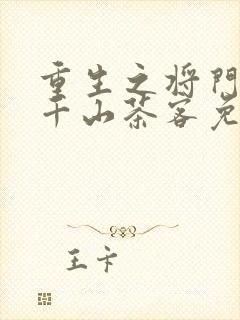 重生之将门
千山茶客免
王卡